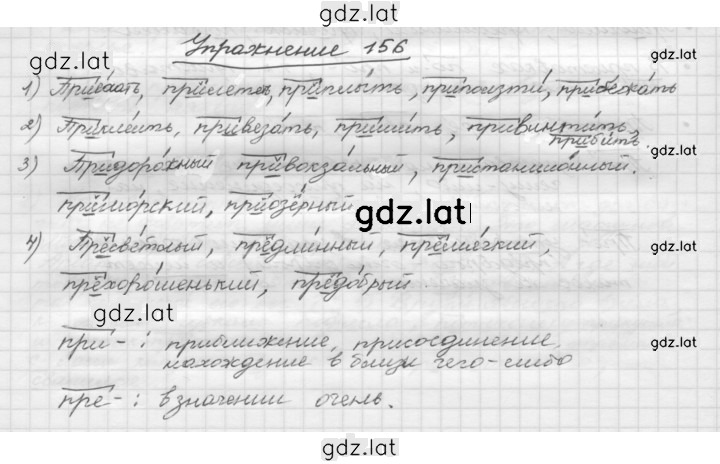 gdz.lat
Упражнение 156
gdz.lat
gdz.lat
1) Прибыть, прилететь, приплыть, приползти, прибежать
2) Приклеить, привезать, пришить, привинтить,
прибить.
gdz.lat
3) Придорожный привокзальный, пристанционный.
приморский, приозёрный
gdz.lat
4) Пресветлый, предлинный, премягкий,
gdz.lat
прехорошенький, предобрый
gdz.lat
при- : приближение, присоединение,
gdz.lat
нахождение в близи чего-либо
пре- : в значении очень.
gdz.lat
gdz.lat